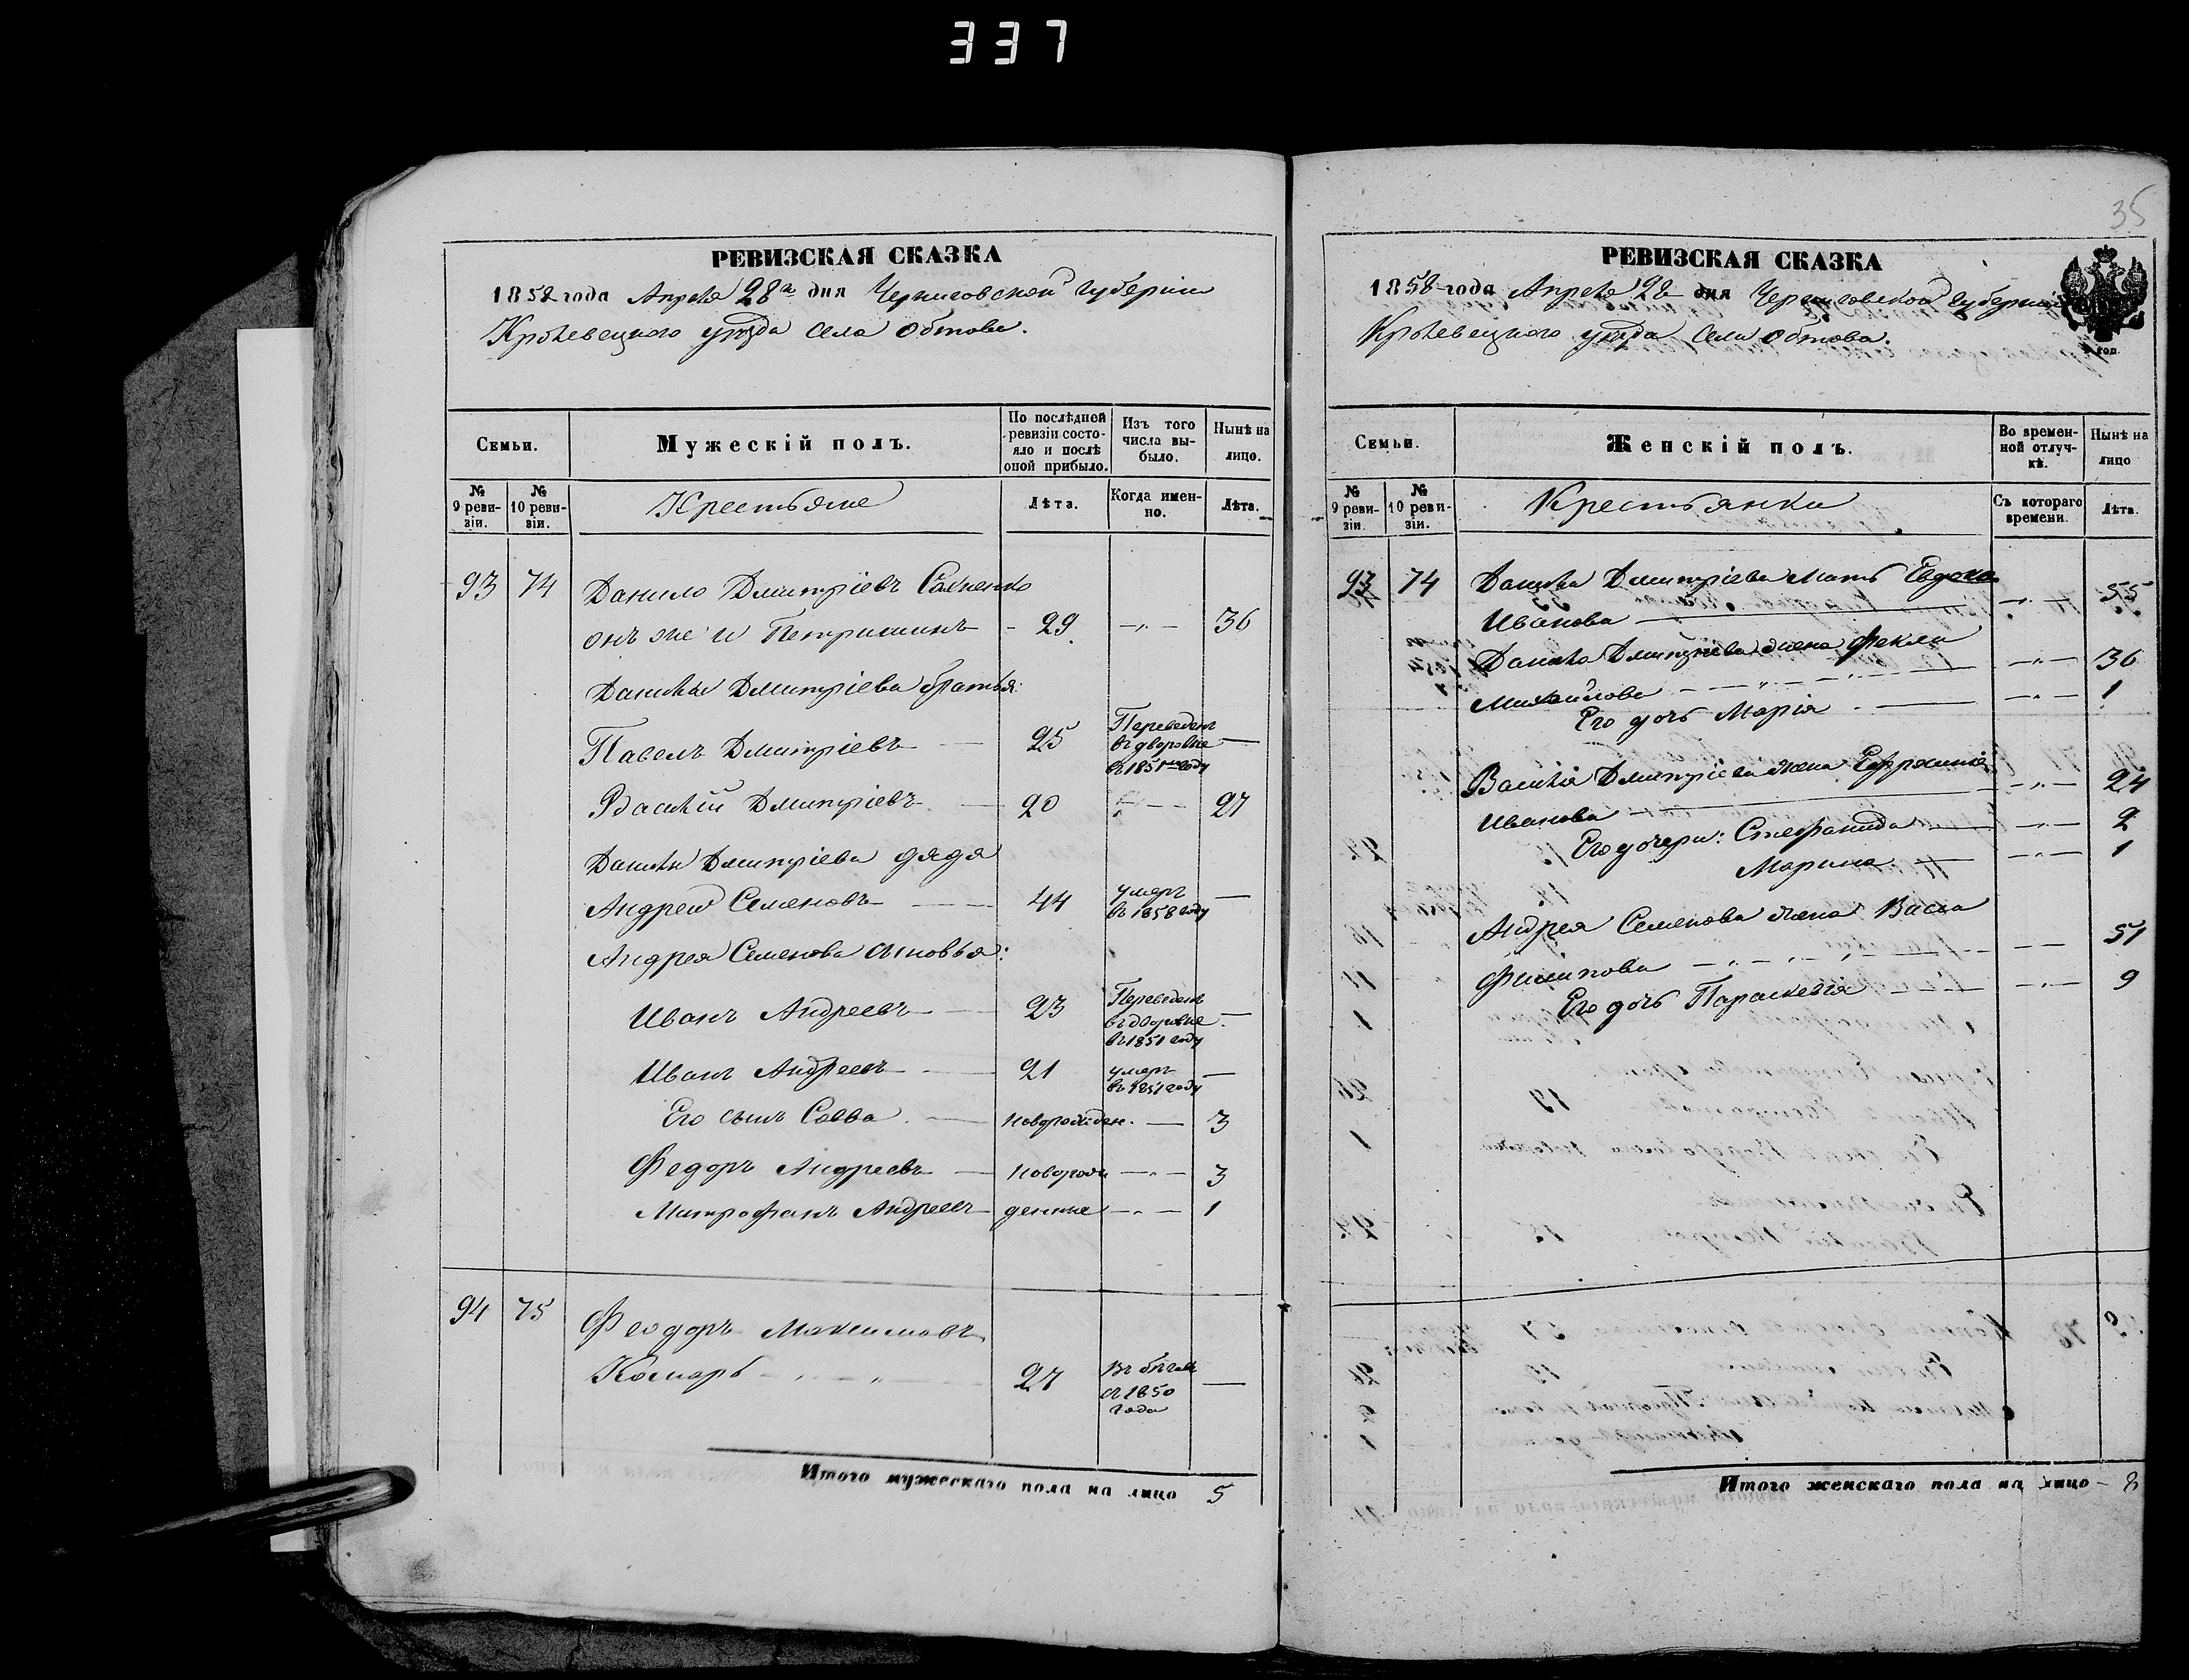 337
35
РЕВИЗСКАЯ СКАЗКА
1858 года Апреля 28го дня Черниговской губернии
Кролевецкого уѣзда села Обтова.
Семьи.
Мужескій полъ.
По послѣдней ревизіи состояло и послѣ оной прибыло.
Изъ того числа выбыло.
Нынѣ на лицо.
№ 9 ревизіи.
№ 10 ревизіи.
Крестьяне
Лѣта.
Когда именно.
Лѣта.
93 74 Данило Дмитріевъ
онъ же и Петришинъ - 29 —„— 36
Данилы Дмитріева братья:
Павелъ Дмитріевъ — 25 Переведенъ въ дворовые въ 1851мъ году —
Василій Дмитріевъ — 20 —„— 27
Данилы Дмитріева дядя
Андрей Семеновъ — 44 умеръ въ 1858 году —
Андрея Семенова сыновья:
Иванъ Андреевъ — 23 Переведенъ въ дворовые въ 1851 году —
Иванъ Андреевъ — 21 умеръ въ 1857 году —
Его сынъ Савва — новорожден. — 3
Федоръ Андреевъ — новорож —„— 3
Митрофанъ Андреевъ — денные —„— 1
94 75 Феодоръ Максимовъ
Комаръ — „ — „ — 27 Въ бѣгахъ съ 1850 года —
Итого мужескаго пола на лицо 5
РЕВИЗСКАЯ СКАЗКА
1858 года Апреля 28 дня Черниговской губерніи
Кролевецкого уѣзда села Обтова.
Семьи.
Женскій полъ.
Во временной отлучкѣ.
Нынѣ на лицо
№ 9 ревизіи.
№ 10 ревизіи.
Крестьянки
Съ котораго времени.
Лѣта.
93 74 Данилы Дмитріева мать
Иванова — —„— 55
Данилы Дмитріева жена Фекла
Михайлова — „ — „ — —„— 36
Его дочь Марія — —„— 1
Василія Дмитріева жена Ефросинія
Иванова — —„— 24
Его дочери: Стефанида — —„— 2
Марина — —„— 1
Андрея Семенова жена Васса
Филипова — „ — „ — — — 51
Его дочь Параскевія — —„— 9
Итого женскаго пола на лицо - 8